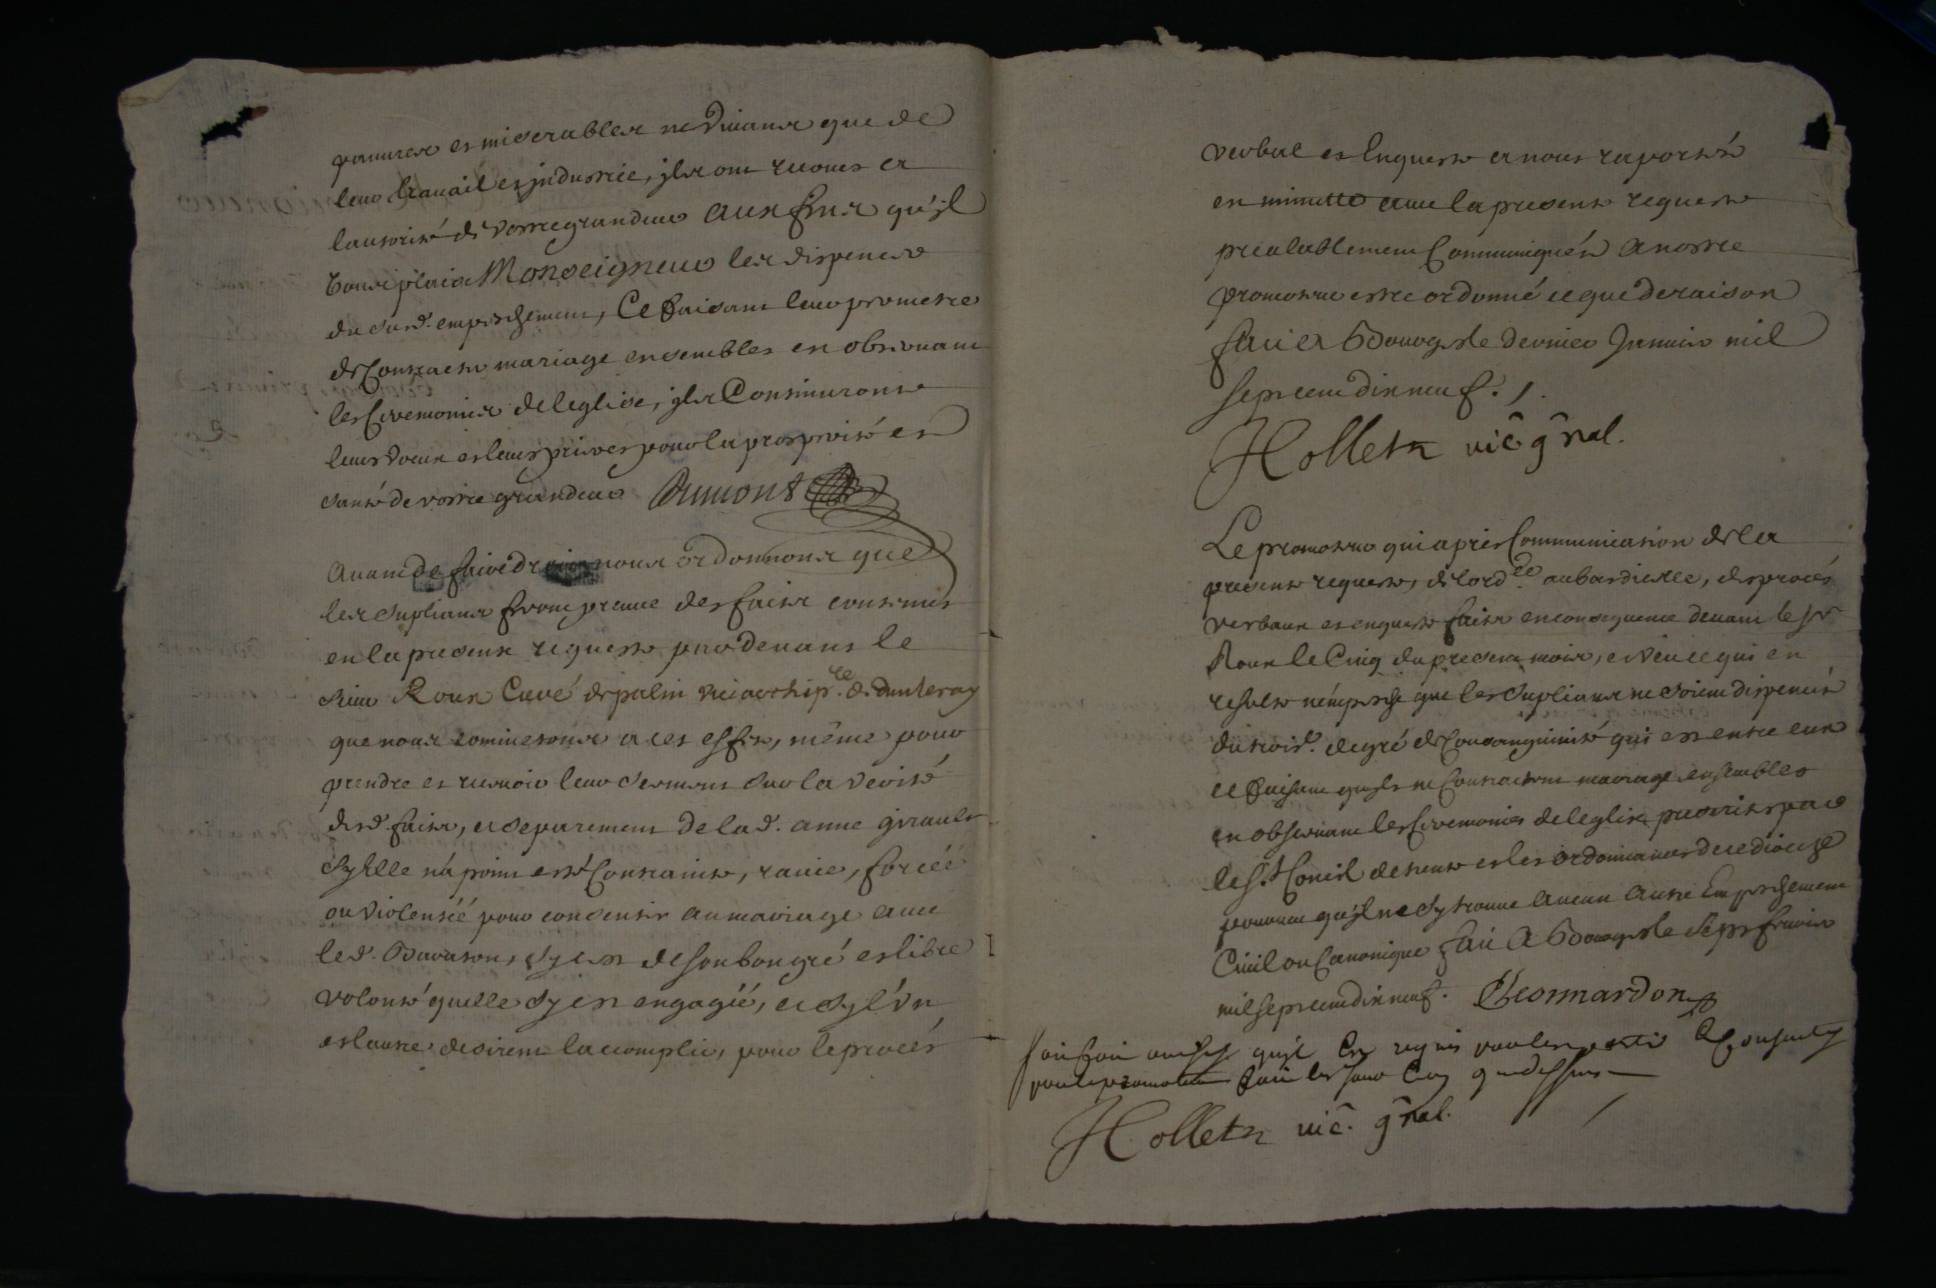 pauures et miserables ne Viuans que de
leur trauail et jndustrie, jls ont recours a
lautorité de Vostre grandeur aux fins qu'jl
Vous plaise Monseigneur les dispencer
du susd. empeschement, Ce faisant leur permettre
de Contracter mariage ensembles en obseruant
les Ceremonies de leglise, jls Continuront
leurs Vœux et leurs prieres pour la prosperité et
santé de vostre grandeur Aumont
Auant de faire droit nous ordonnons que
les supliants feront preuue des faits contenus
en la presente requeste par deuant le
sieur Roux Curé de palin archip.
que nous commettons a cet effet, même pour
prendre et receuoir leur serment sur la verité
desd. faits, et separement de lad. anne girault
sy Elle n'a point esté Contrainte, rauie, forcée
ou violentée pour consentir au mariage auec
led. sy cest de son bon gré et libre
volonté quelle sy est engagée, et sy l'vn
et lautre desirent laccomplir, pour le procés
verbal et Enqueste a nous raportés
en minutte auec la presente requeste
prealablement Communiqués a nostre
promoteur estre ordonné ce que de raison
fait a Bourges le dernier Januier mil
sept cent dix neuf.
Hollett vic. gnal.
Le promoteur qui a pris Communication de la
presente requeste, de lord.ce au bas dicelle, des procés
verbaux et enqueste faits en consequence deuant le sr
Roux le Cinq du present mois, et veu ce qui en
resulte n'empesche que les supliants ne soient dispencés
du trois.e degré de Consanguinité qui est entre eux
ce faisant quils ne Contractent mariage ensembles
en obseruant les Ceremonies de leglise prescrites par
le St Concil de trente et les ordonnances de ce diocese
pourueu qu'jl ne sy trouue aucun autre Empeschement
Ciuil ou Canonique fait a Bourges le sept feurier
mil sept cent dix neuf. Leonnardon
soit fait ainsy qu'jl Est requis par les et Consenty
par le promoteur fait les jour et an que dessus
Hollett vic. gnal.